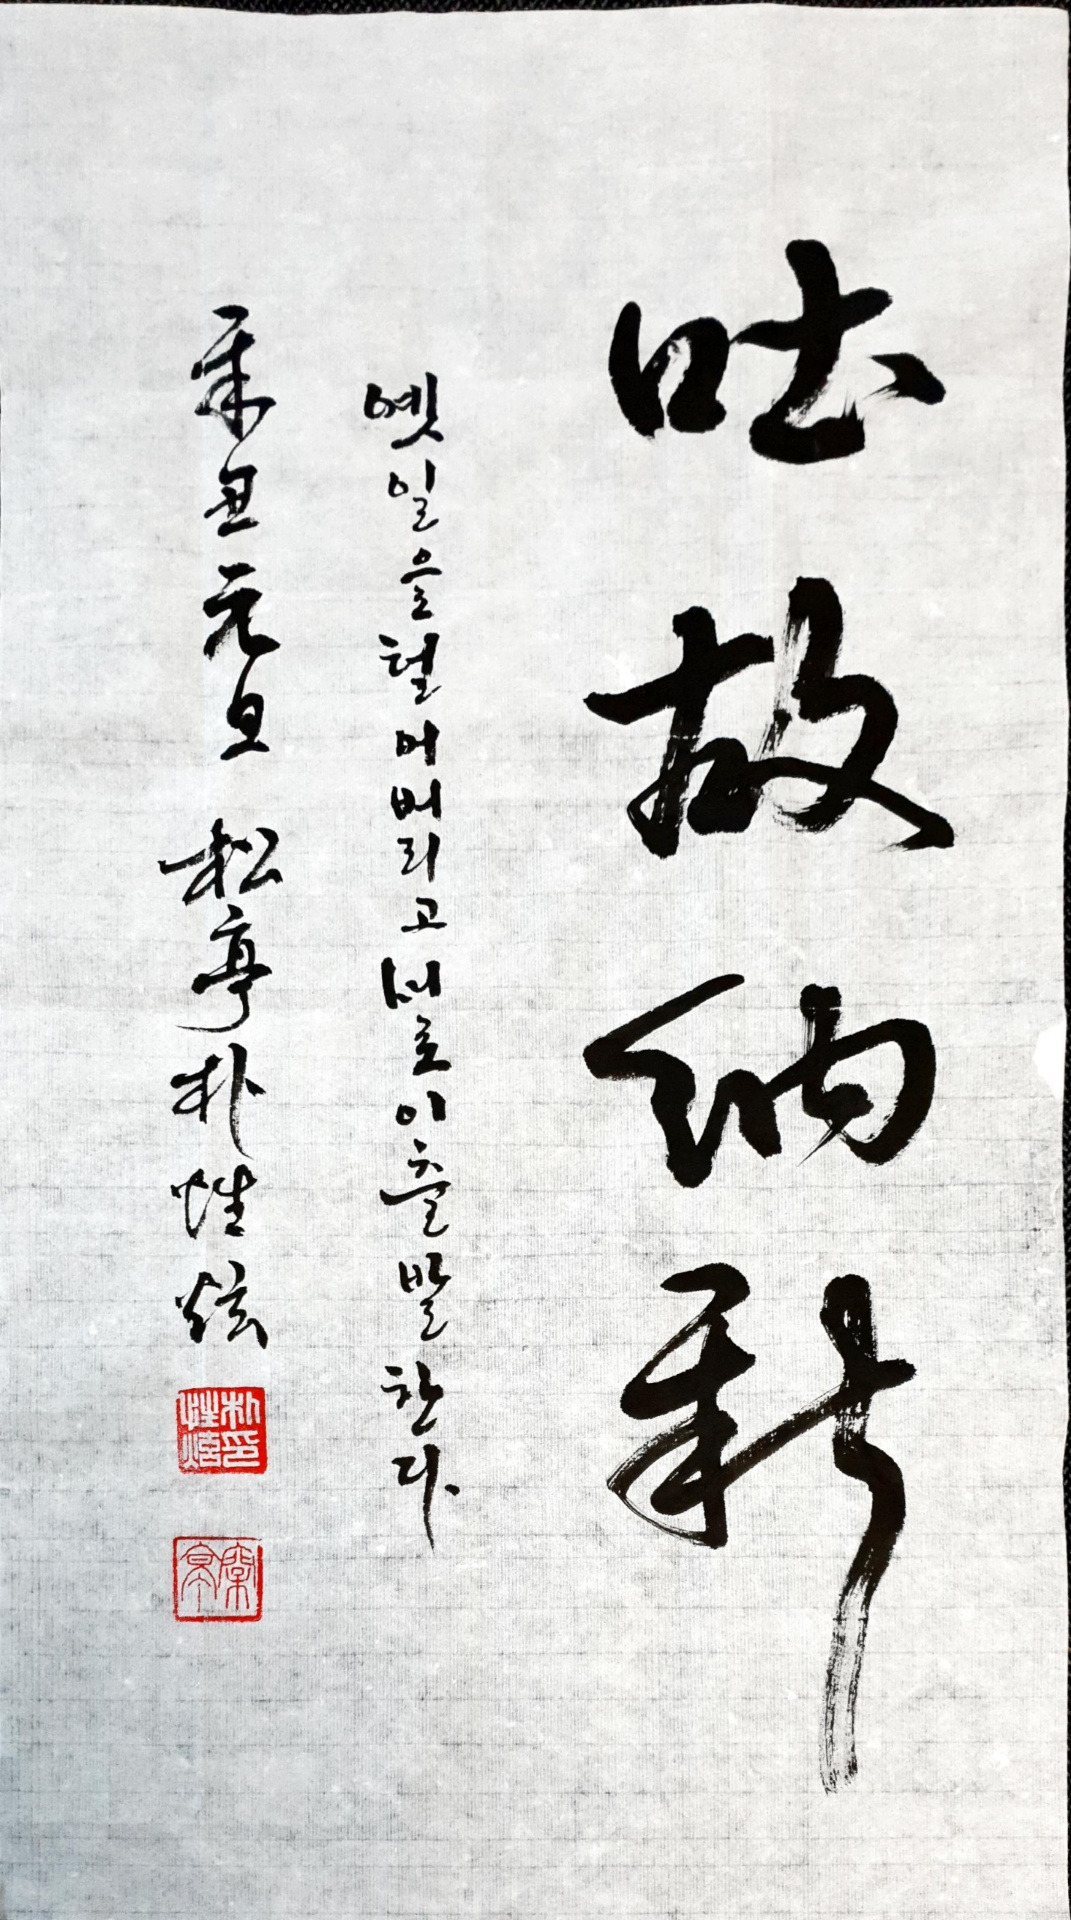 吐故納新
옛일을털어버리고새로이출발한다.
辛丑元旦 松亭朴性炫
松亭